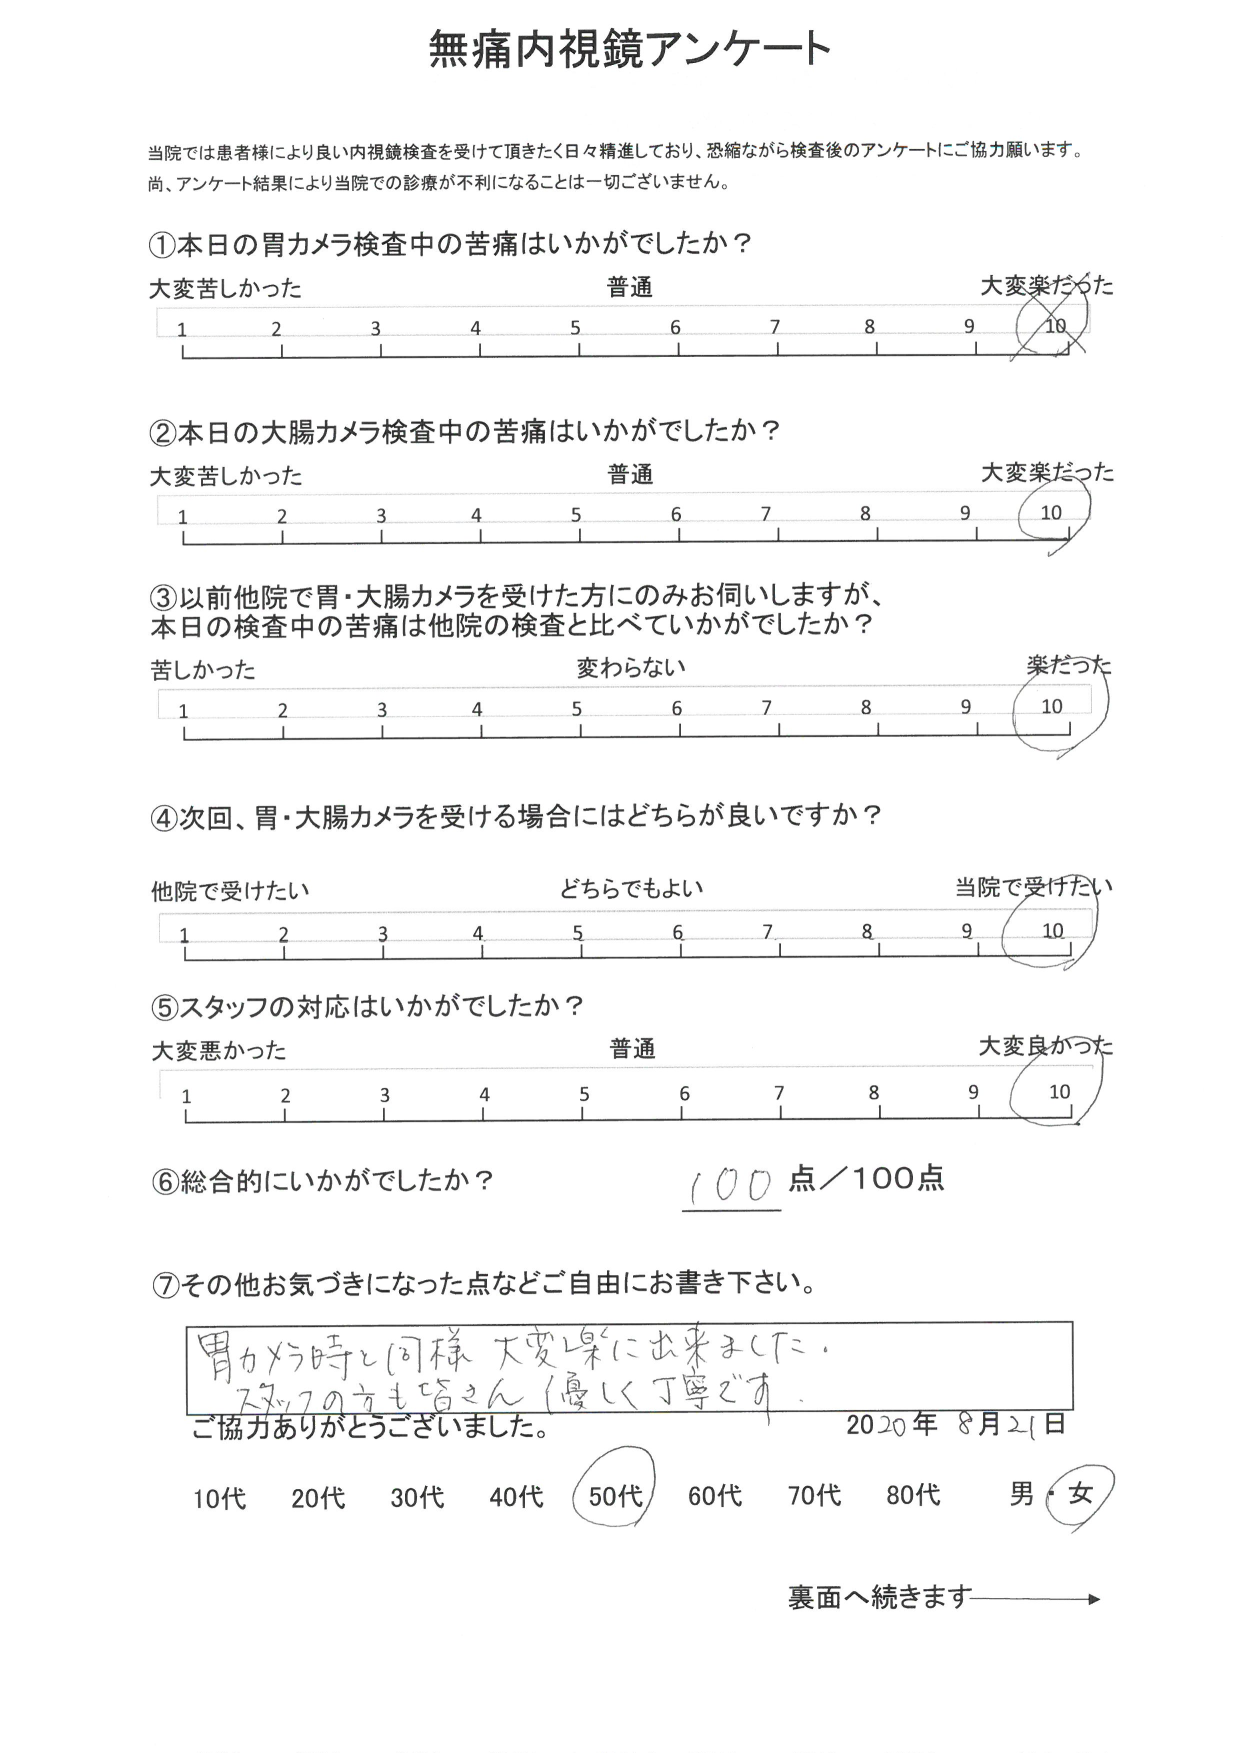 無痛内視鏡アンケート
当院では患者様により良い内視鏡検査を受けて頂きたく日々精進しており、恐縮ながら検査後のアンケートにご協力願います。
尚、アンケート結果により当院での診療が不利になることは一切ございません。
①本日の胃カメラ検査中の苦痛はいかがでしたか?
大変苦しかった 普通 大変楽だった
1 2 3 4 5 6 7 8 9 10
②本日の大腸カメラ検査中の苦痛はいかがでしたか?
大変苦しかった 普通 大変楽だった
1 2 3 4 5 6 7 8 9 10
③以前他院で胃・大腸カメラを受けた方にのみお伺いしますが、
本日の検査中の苦痛は他院の検査と比べていかがでしたか?
苦しかった 変わらない 楽だった
1 2 3 4 5 6 7 8 9 10
④次回、胃・大腸カメラを受ける場合にはどちらが良いですか?
他院で受けたい どちらでもよい 当院で受けたい
1 2 3 4 5 6 7 8 9 10
⑤スタッフの対応はいかがでしたか?
大変悪かった 普通 大変良かった
1 2 3 4 5 6 7 8 9 10
⑥総合的にいかがでしたか? 100 点/100点
⑦その他お気づきになった点などご自由にお書き下さい。
胃カメラ時と同様 大変楽に出来ました.
スタッフの方も皆さん 優しく丁寧です.
ご協力ありがとうございました。 2020年 8月21日
10代 20代 30代 40代 50代 60代 70代 80代 男・女
裏面へ続きます